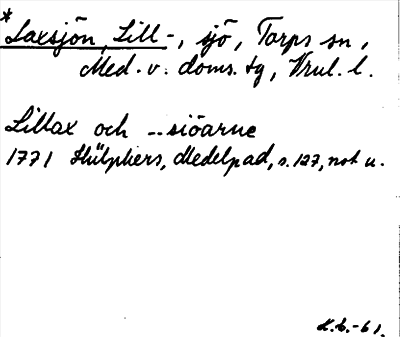 *
Laxsjön, Lill-, sjö, Torps sn,
Med. v. doms. tg, Vnrl. l.
Lillax och --siöarne
1771 Hülphers, Medelpad, s. 127, not u.
K.b.-61.